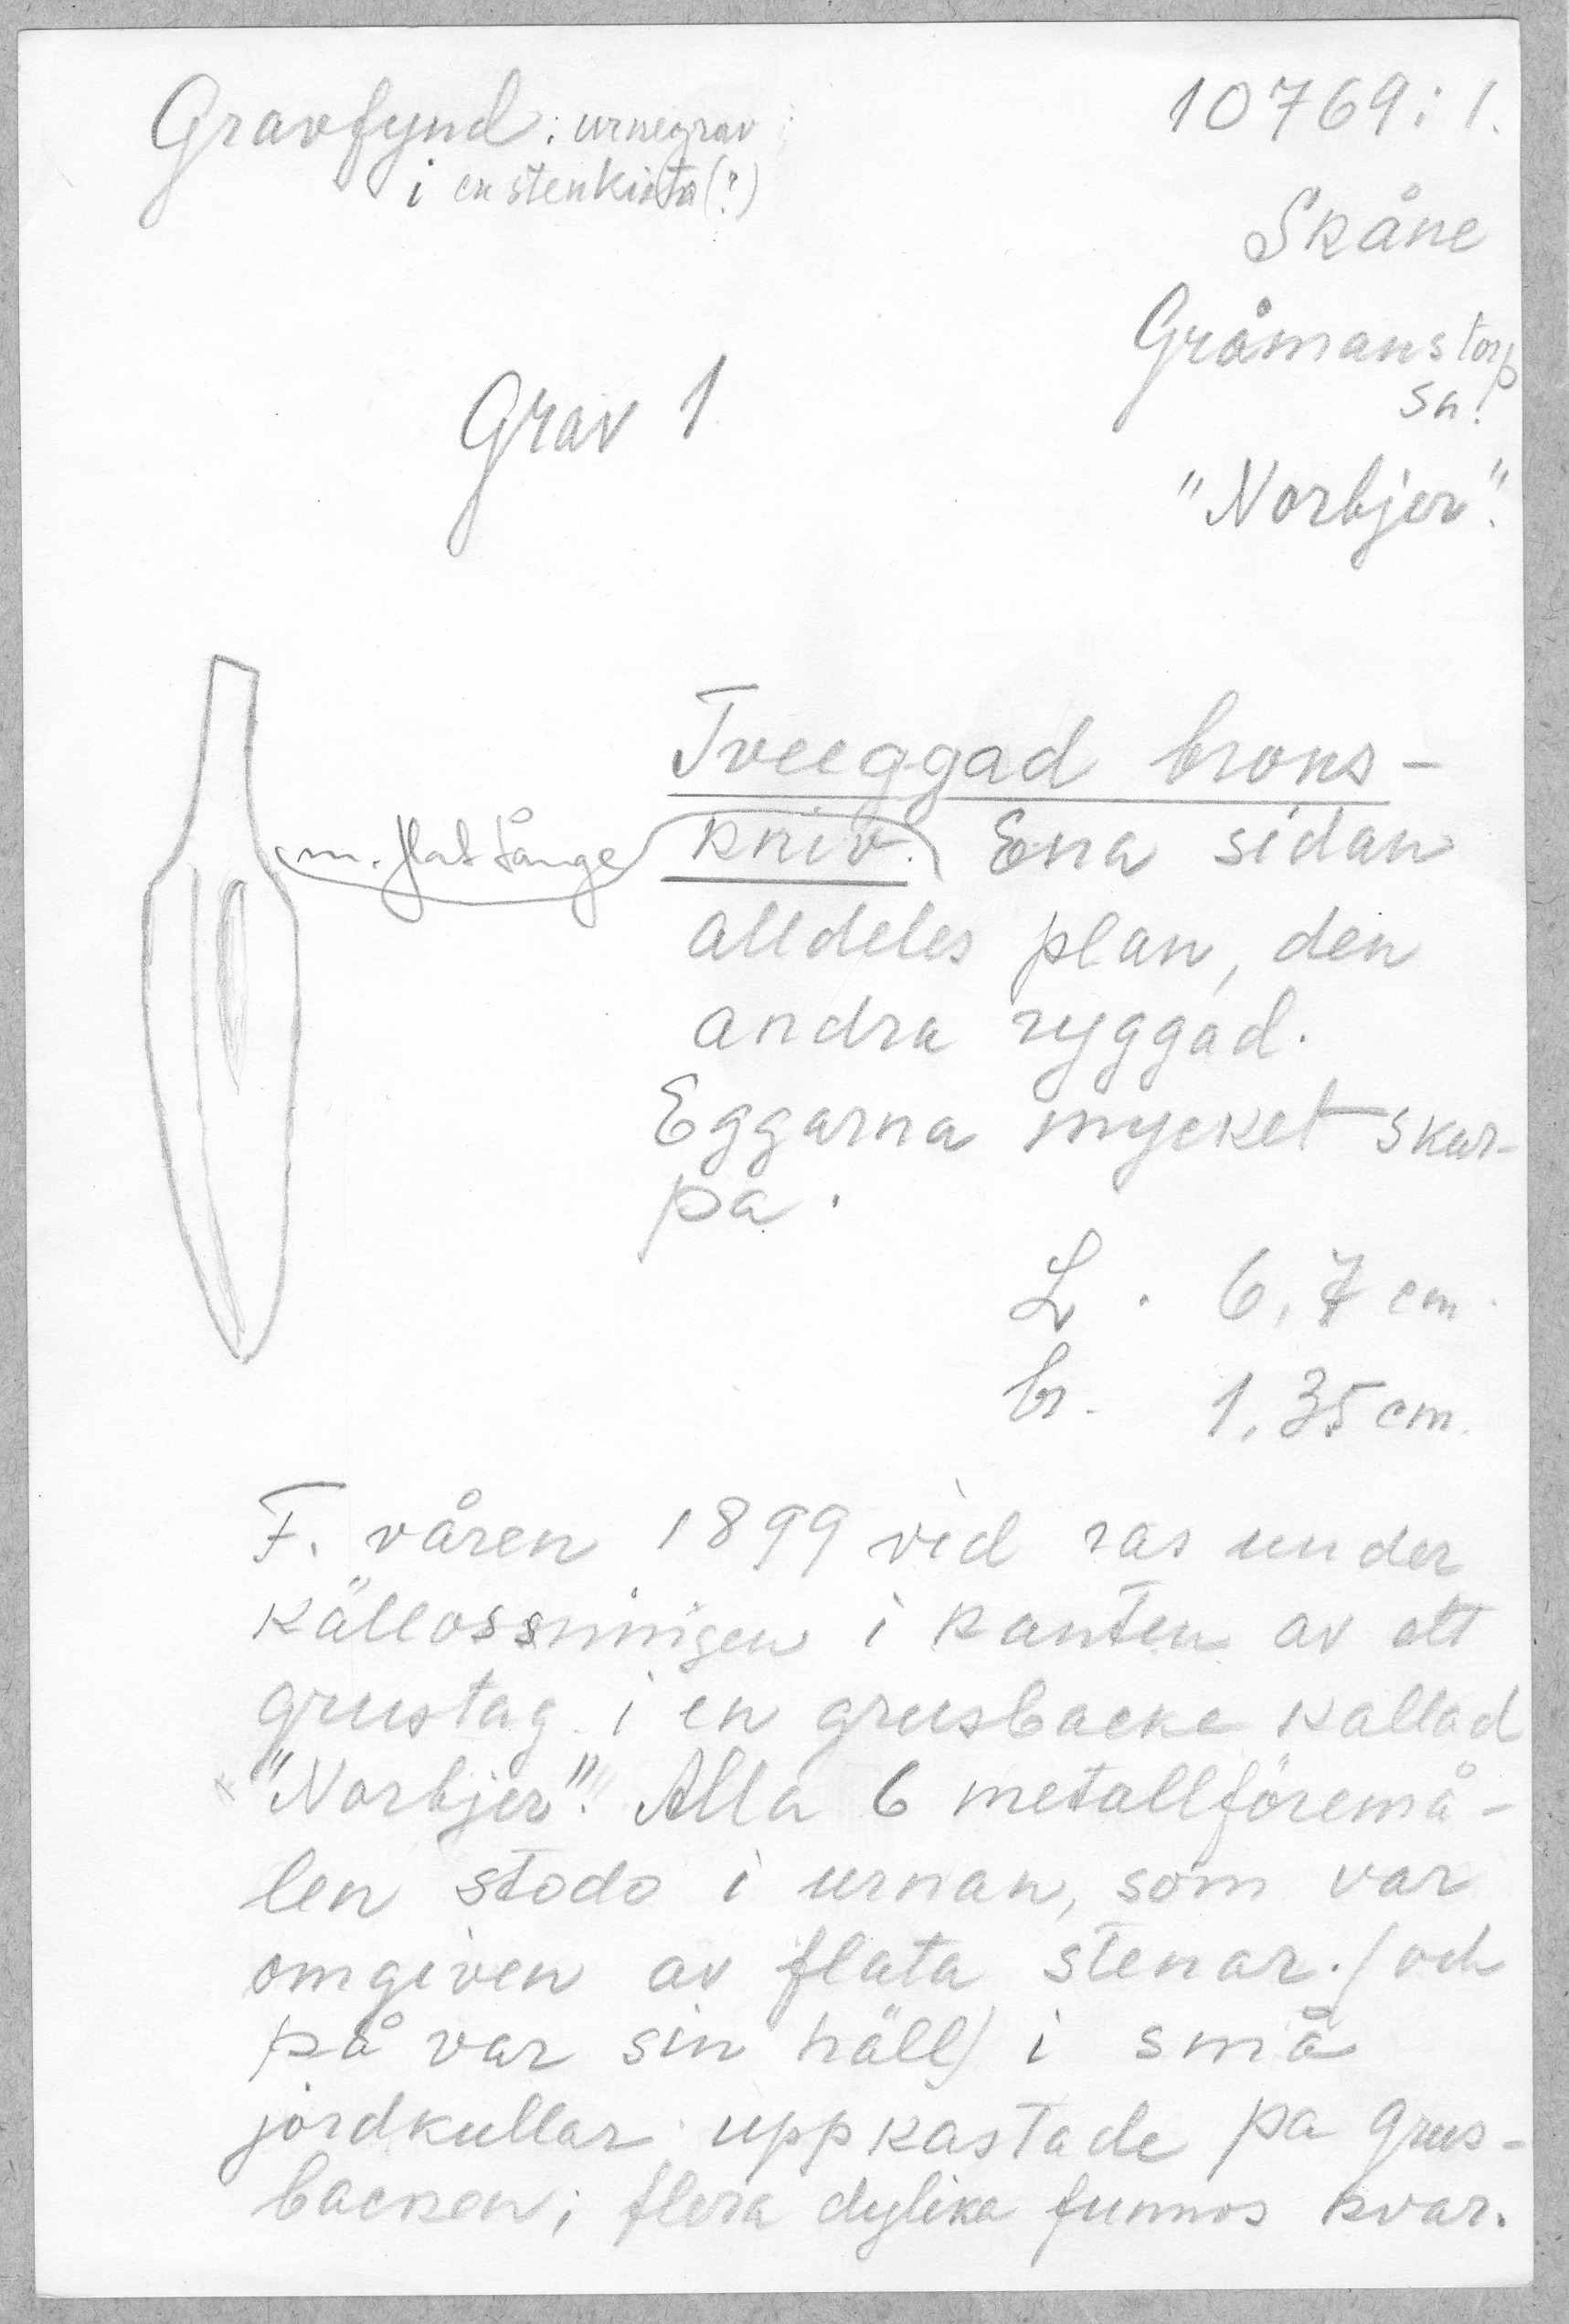 Gravfynd: urnegrav
i en stenkista (?)
10769:1.
Skåne
Gråmanstorp
sn.
"Norbjer".
Grav 1
Tveeggad brons-
m. flat tånge
kniv. Ena sidan
alldeles plan, den
andra ryggad.
Eggarna mycket skar-
pa.
L. 6,7 cm.
br. 1,35 cm.
F. våren 1899 vid ras under
källossningen i kanten av ett
grustag i en grusbacke kallad
"Norbjer". Alla 6 metallföremå-
len stodo i urnan, som var
omgiven av flata stenar. (och
på var sin häll) i små
jordkullar uppkastade pa grus-
backen; flera dylika funnos kvar.